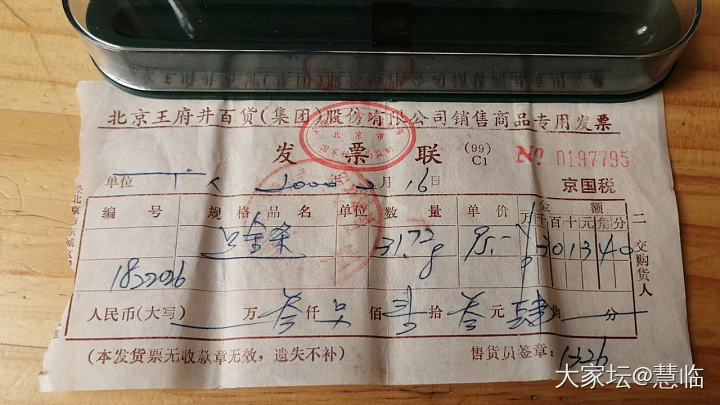 北京王府井百货(集团)股份有限公司销售商品专用发票
发 票 联 (99) C1 № 0197795
北京市
单位 个人 2000年2月16日 京国税
编号 规格品名 单位 数量 单价 金额
万千百十元角分
足金条 31.72g 95.- ¥301340
人民币(大写) 万叁仟零佰壹拾叁元肆角 分
(本发货票无收款章无效，遗失不补) 售货员签章：
二 交购货人
大家坛@慧临